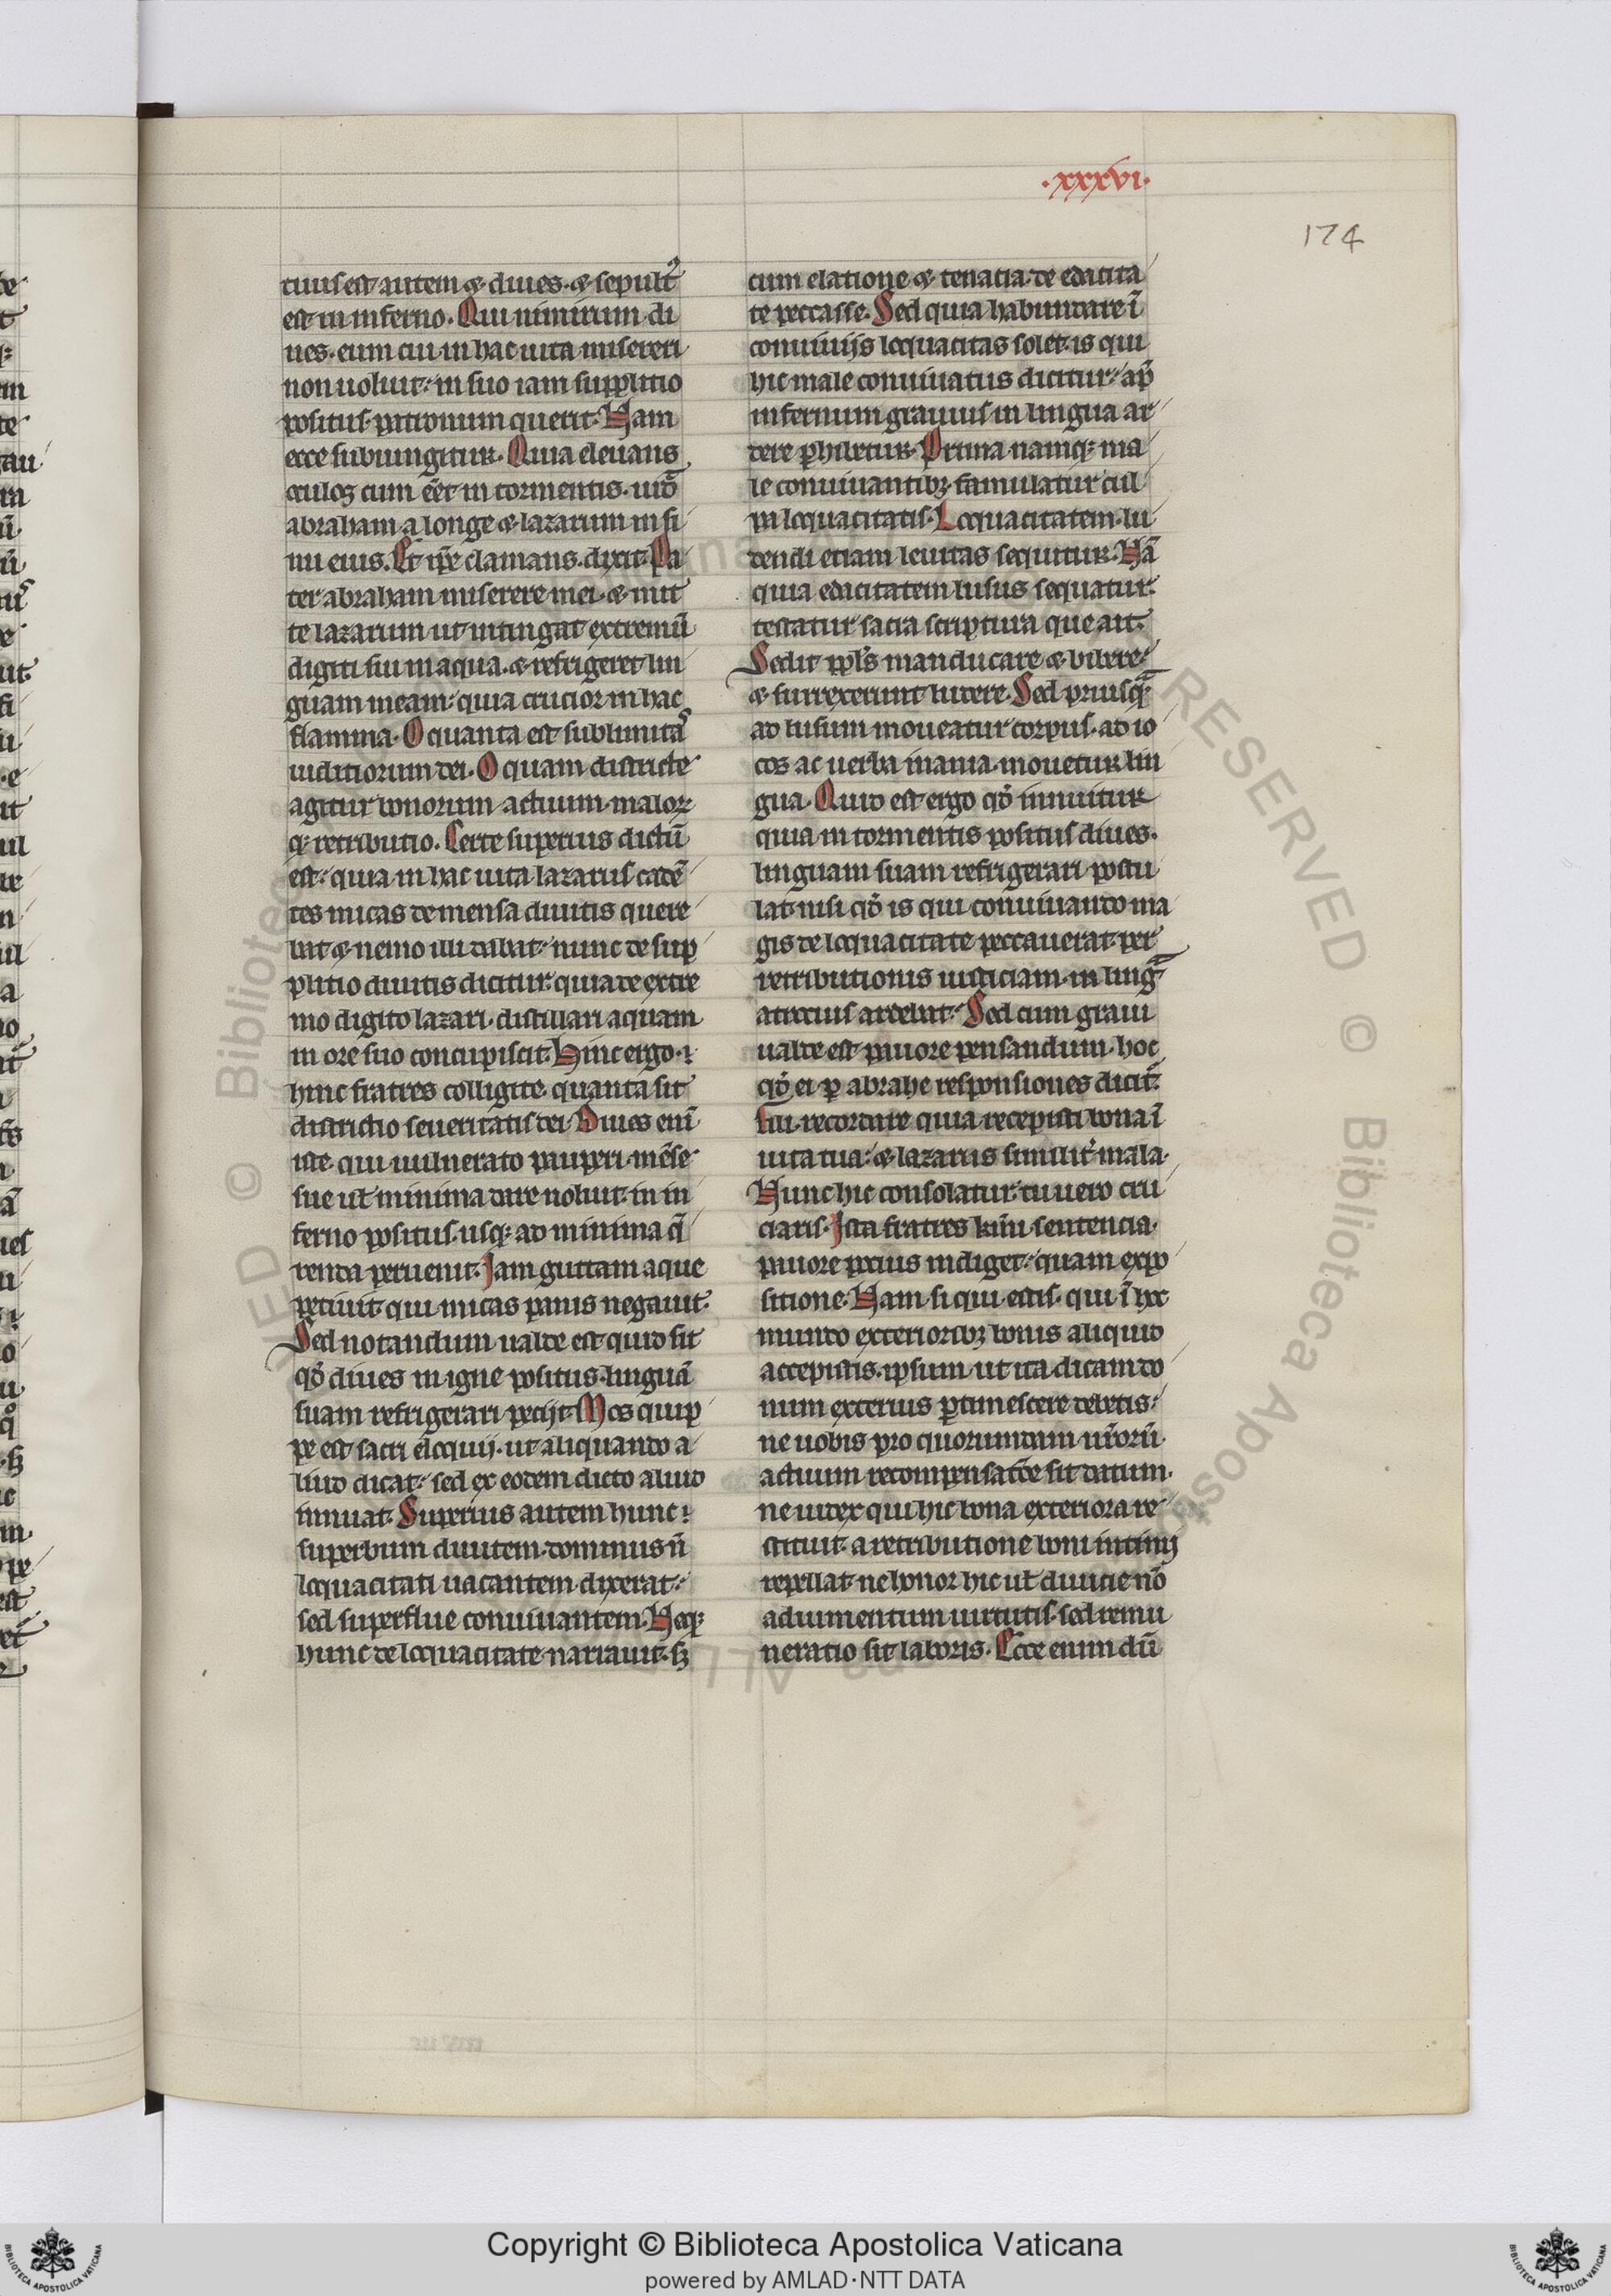 .xxxvi.
174
tuus est autem ⁊ diues. ⁊ sepultꝰ
est in inferno. Qui nimirum di
ues. eum cui in hac uita misereri
non uoluit: in suo iam supplitio
positus patronum querit. Nam
ecce subiungitur. Quia eleuans
oculos cum eēt in tormentis. uiđ
abraham a longe ⁊ lazarum in si
nu eius. Et ip̄e clamans. dixit. Pa
ter abraham miserere mei. ⁊ mit
te lazarum ut intingat extremū
digiti sui in aqua. ⁊ refrigeret lin
guam meam: quia crucior in hac
flamma. O quanta est sublimitaˢ
iuditiorum dei. O quam districte
agitur bonorum actuum. maloꝝ
qꝫ retributio. Certe superius dictū
est: quia in hac uita lazarus cadē
tes micas de mensa diuitis quere
bat ⁊ nemo illi dabat: nunc de sup
plitio diuitis dicitur. quia de extre
mo digito lazari. distillari aquam
in ore suo concupiscit. Hinc ergo.
hinc fratres colligite. quanta sit
districtio seueritatis dei. Diues enī
iste. qui uulnerato pauperi. mēse
sue uł minima dare noluit. in in
ferno positus. usqꝫ ad minima q̄
renda peruenit. Jam guttam aque
petiuit qui micas panis negauit.
Sed notandum ualde est quid sit
qđ diues in igne positus. linguā
suam refrigerari petijt. Mos quip
pe est sacri eloquij. ut aliquando a
liud dicat: sed ex eodem dicto aliud
innuat. Superius autem hunc
superbum diuitem. dominus ñ
loquacitati uacantem. dixerat:
sed superflue conuiuantem. Neqꝫ
hunc de loquacitate narrauit. sꝫ
cum elatione ⁊ tenacia. de edacita
te peccasse. Sed quia habundare ī
conuiuijs loquacitas solet. is qui
hic male conuiuatus dicitur: apđ
infernum grauius in lingua ar
dere ꝑhibetur. Prima namqꝫ ma
le conuiuantibꝫ. famulatur cul
pa loquacitatis. Loquacitatem. lu
dendi etiam leuitas sequitur. Nā
quia edacitatem lusus sequatur.
testatur sacra scriptura que ait.
Sedit ppl̄s manducare ⁊ bibere:
⁊ surrexerunt ludere. Sed priusqᷓ
ad lusum moueatur corpus. ad io
cos ac uerba inania. mouetur lin
gua. Quid est ergo qđ innuitur
quia in tormentis positus diues.
linguam suam refrigerari postu
lat. nisi qđ is qui conuiuando ma
gis de loquacitate peccauerat. per
retributionis iusticiam. in lingᷓ
atrocius ardebat. Sed cum graui
ualde est pauore pensandum. hoc
qđ ei ꝑ abrahe responsiones dicit̄.
Fili. recordare quia recepisti bona ī
uita tua: ⁊ lazarus similit̓ mala.
Nunc hic consolatur. tu uero cru
ciaris. Ista fratres kmi sentencia.
pauore pocius indiget: quam expo
sitione. Nam si qui estis. qui ī hoc
mundo exterioribꝫ bonis aliquid
accepistis. ipsum ut ita dicam do
num exterius ꝑtimescere debetis:
ne uobis pro quorumdam ur̄orū.
actuum recompensatōe sit datum.
ne iudex qui hic bona exteriora re
stituit. a retributione boni intimi
repellat. ne honor hic uł diuicie nō
adiumentum uirtutis. sed remu
neratio sit laboris. Ecce enim dū
Copyright © Biblioteca Apostolica Vaticana
powered by AMLAD·NTT DATA